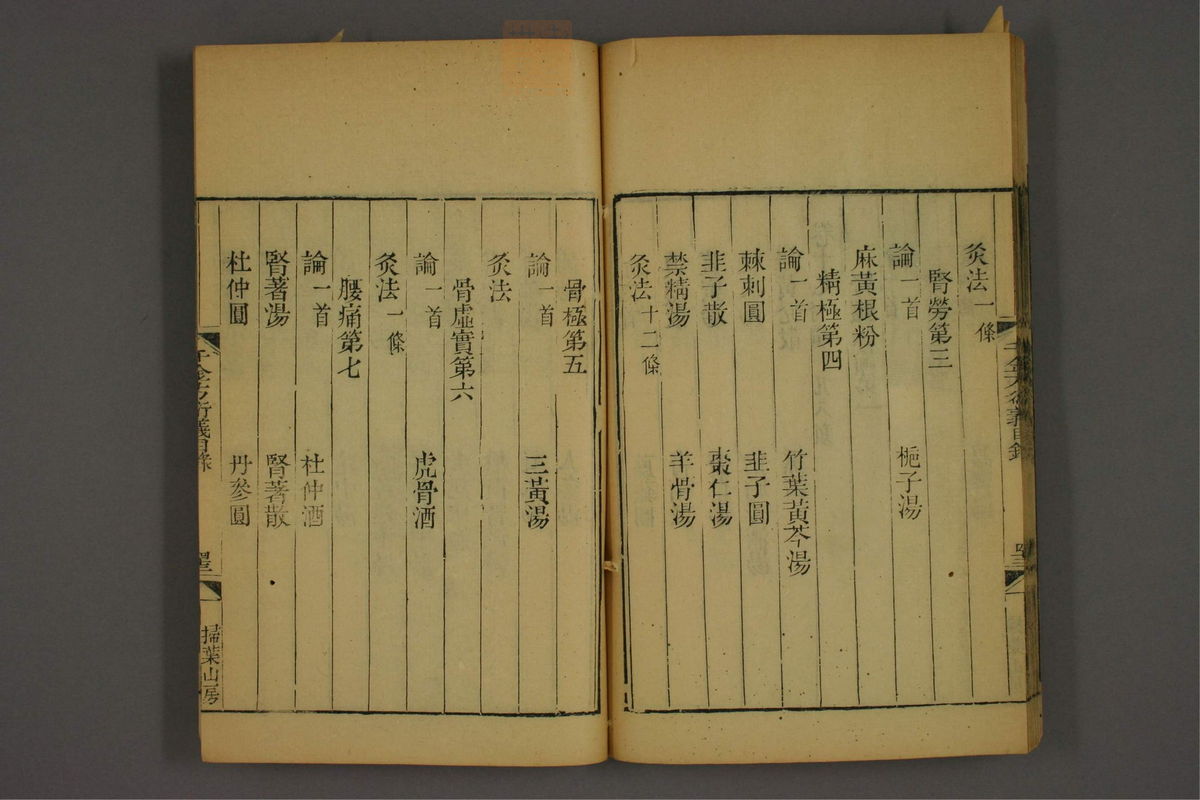 灸法一條
腎勞第三
論一首　梔子湯
麻黃根粉
精極第四
論一首　竹葉黃芩湯
棘刺圓　韭子圓
韭子散　棗仁湯
禁精湯　羊骨湯
灸法十二條
骨極第五
論一首　三黃湯
灸法
骨虛實第六
論一首　虎骨酒
灸法一條
腰痛第七
論一首　杜仲酒
腎著湯　腎著散
杜仲圓　丹參圓
千金方衍義目錄
掃葉山房